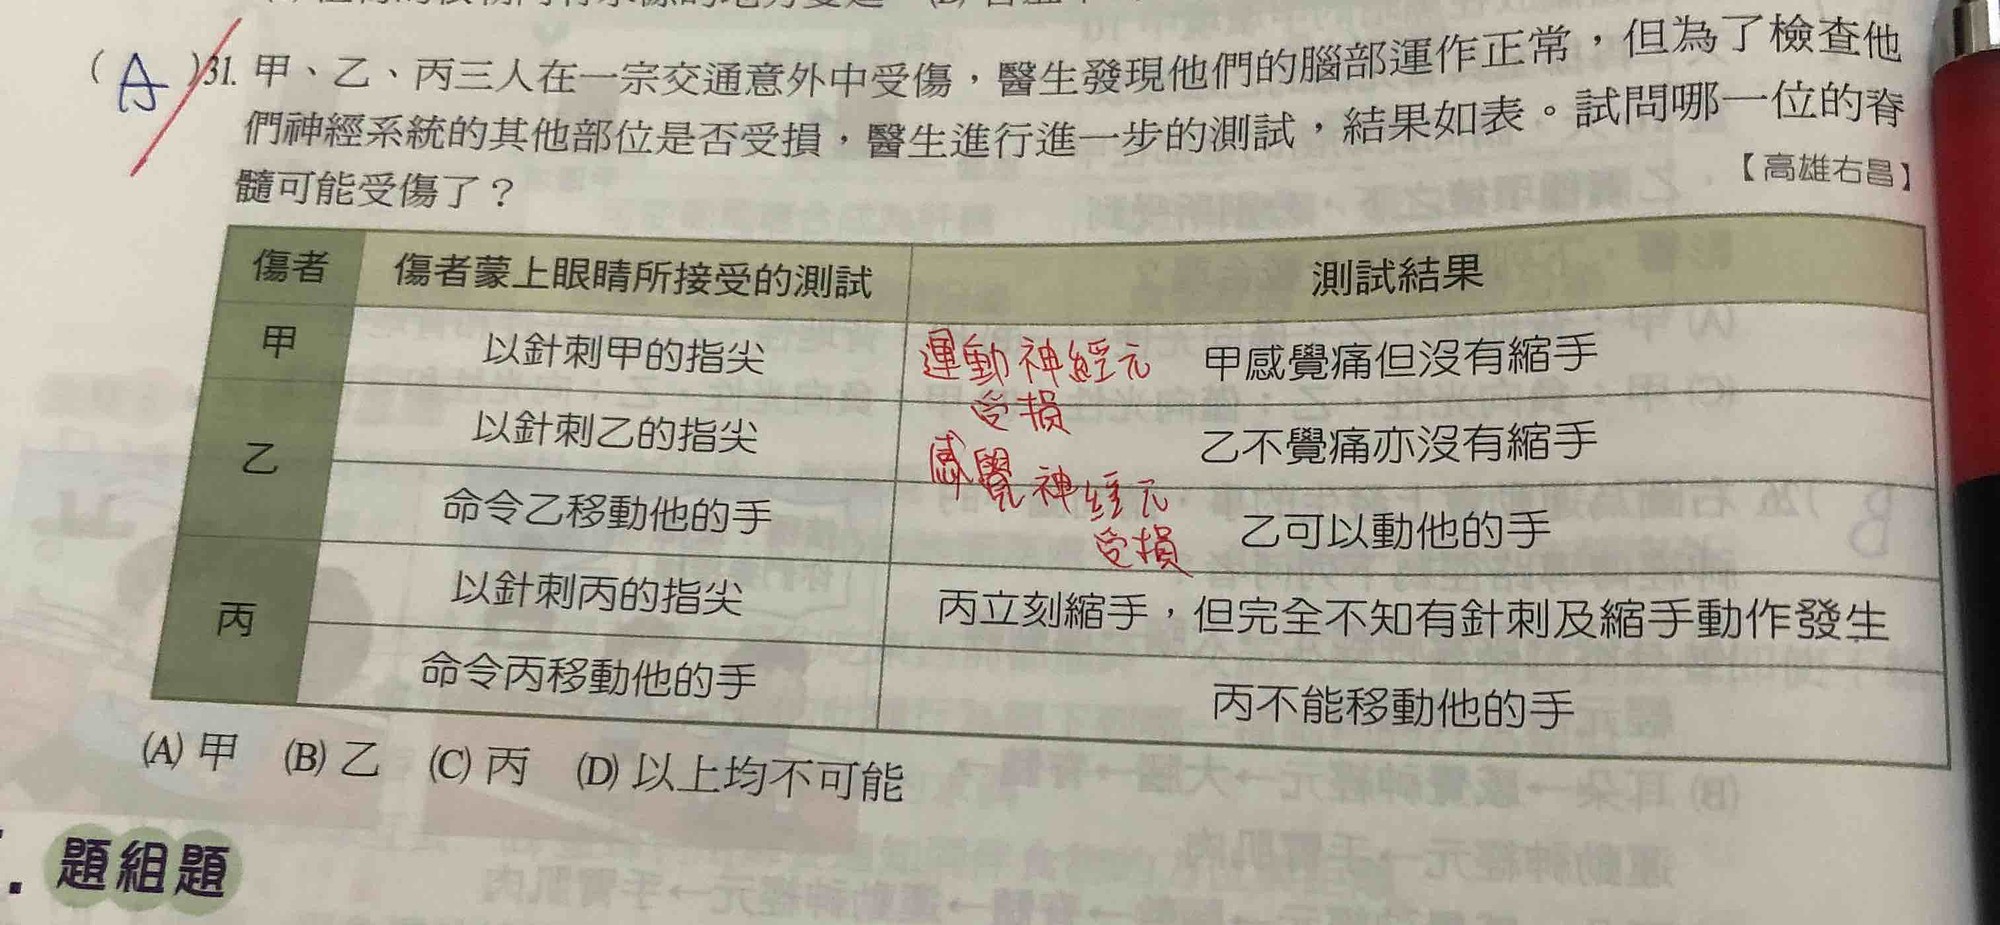 (A)31. 甲、乙、丙三人在一宗交通意外中受傷，醫生發現他們的腦部運作正常，但為了檢查他
們神經系統的其他部位是否受損，醫生進行進一步的測試，結果如表。試問哪一位的脊
髓可能受傷了？
【高雄右昌】
傷者 傷者蒙上眼睛所接受的測試 測試結果
甲 以針刺甲的指尖 甲感覺痛但沒有縮手
運動神經元
受損
乙 以針刺乙的指尖 乙不覺痛亦沒有縮手
感覺神經元
受損
命令乙移動他的手 乙可以動他的手
丙 以針刺丙的指尖 丙立刻縮手，但完全不知有針刺及縮手動作發生
命令丙移動他的手 丙不能移動他的手
(A) 甲 (B) 乙 (C) 丙 (D) 以上均不可能
題組題